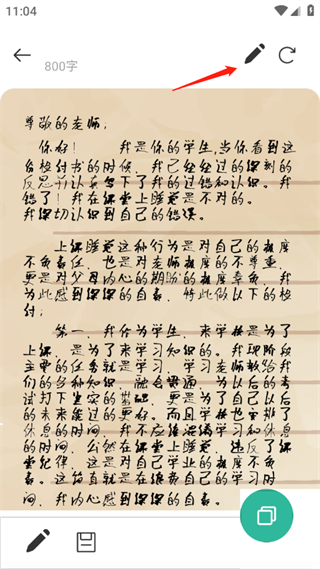 11:04
800字
尊敬的老师,
你好! 我是你的学生,当你看到这
份检付书的时候,我已经经过的深刻的
反思并认真写下了我的过错和认识。我
错了!我在课堂上睡觉是不对的。
我深切认识到自己的错误。
上课睡觉这种行为是对自己的极度
不负责任,也是对老师极度的不尊重,
更是对父母内心的期盼的极度辜负,我
为此感到深深的自责,特此做以下的检
付:
第一,我作为学生,来学校是为了
上课,是为了来学习知识的。我现阶段
主要的任务就是学习,学习老师教给我
们的各种知识,融会贯通,为以后的考
试打下坚实的基础,更是为了自己以后
的未来能过的更好。而且学校也安排了
休息的时间,我不应该混淆学习和休息
的时间,公然在课堂上睡觉,违反了课
堂纪律,这是对自己学业的极度不负
责。这简直就是在浪费自己的学习时
间,我内心感到深深的自责。